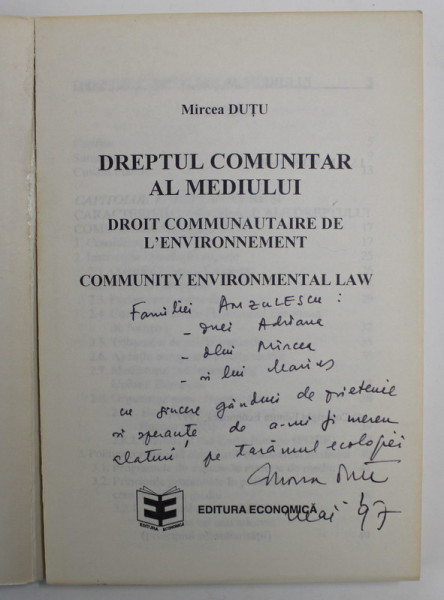 Mircea DUȚU
DREPTUL COMUNITAR
AL MEDIULUI
DROIT COMMUNAUTAIRE DE
L'ENVIRONNEMENT
COMMUNITY ENVIRONMENTAL LAW
Familiei ANZULESCU :
- dnei Adriana
- dlui Mircea
- și lui Marius
cu sincere gânduri de prietenie
și speranțe de a-mi fi mereu
alături, pe tarâmul ecologiei
EDITURA ECONOMICĂ
Mai '97
EDITURA ECONOMICĂ